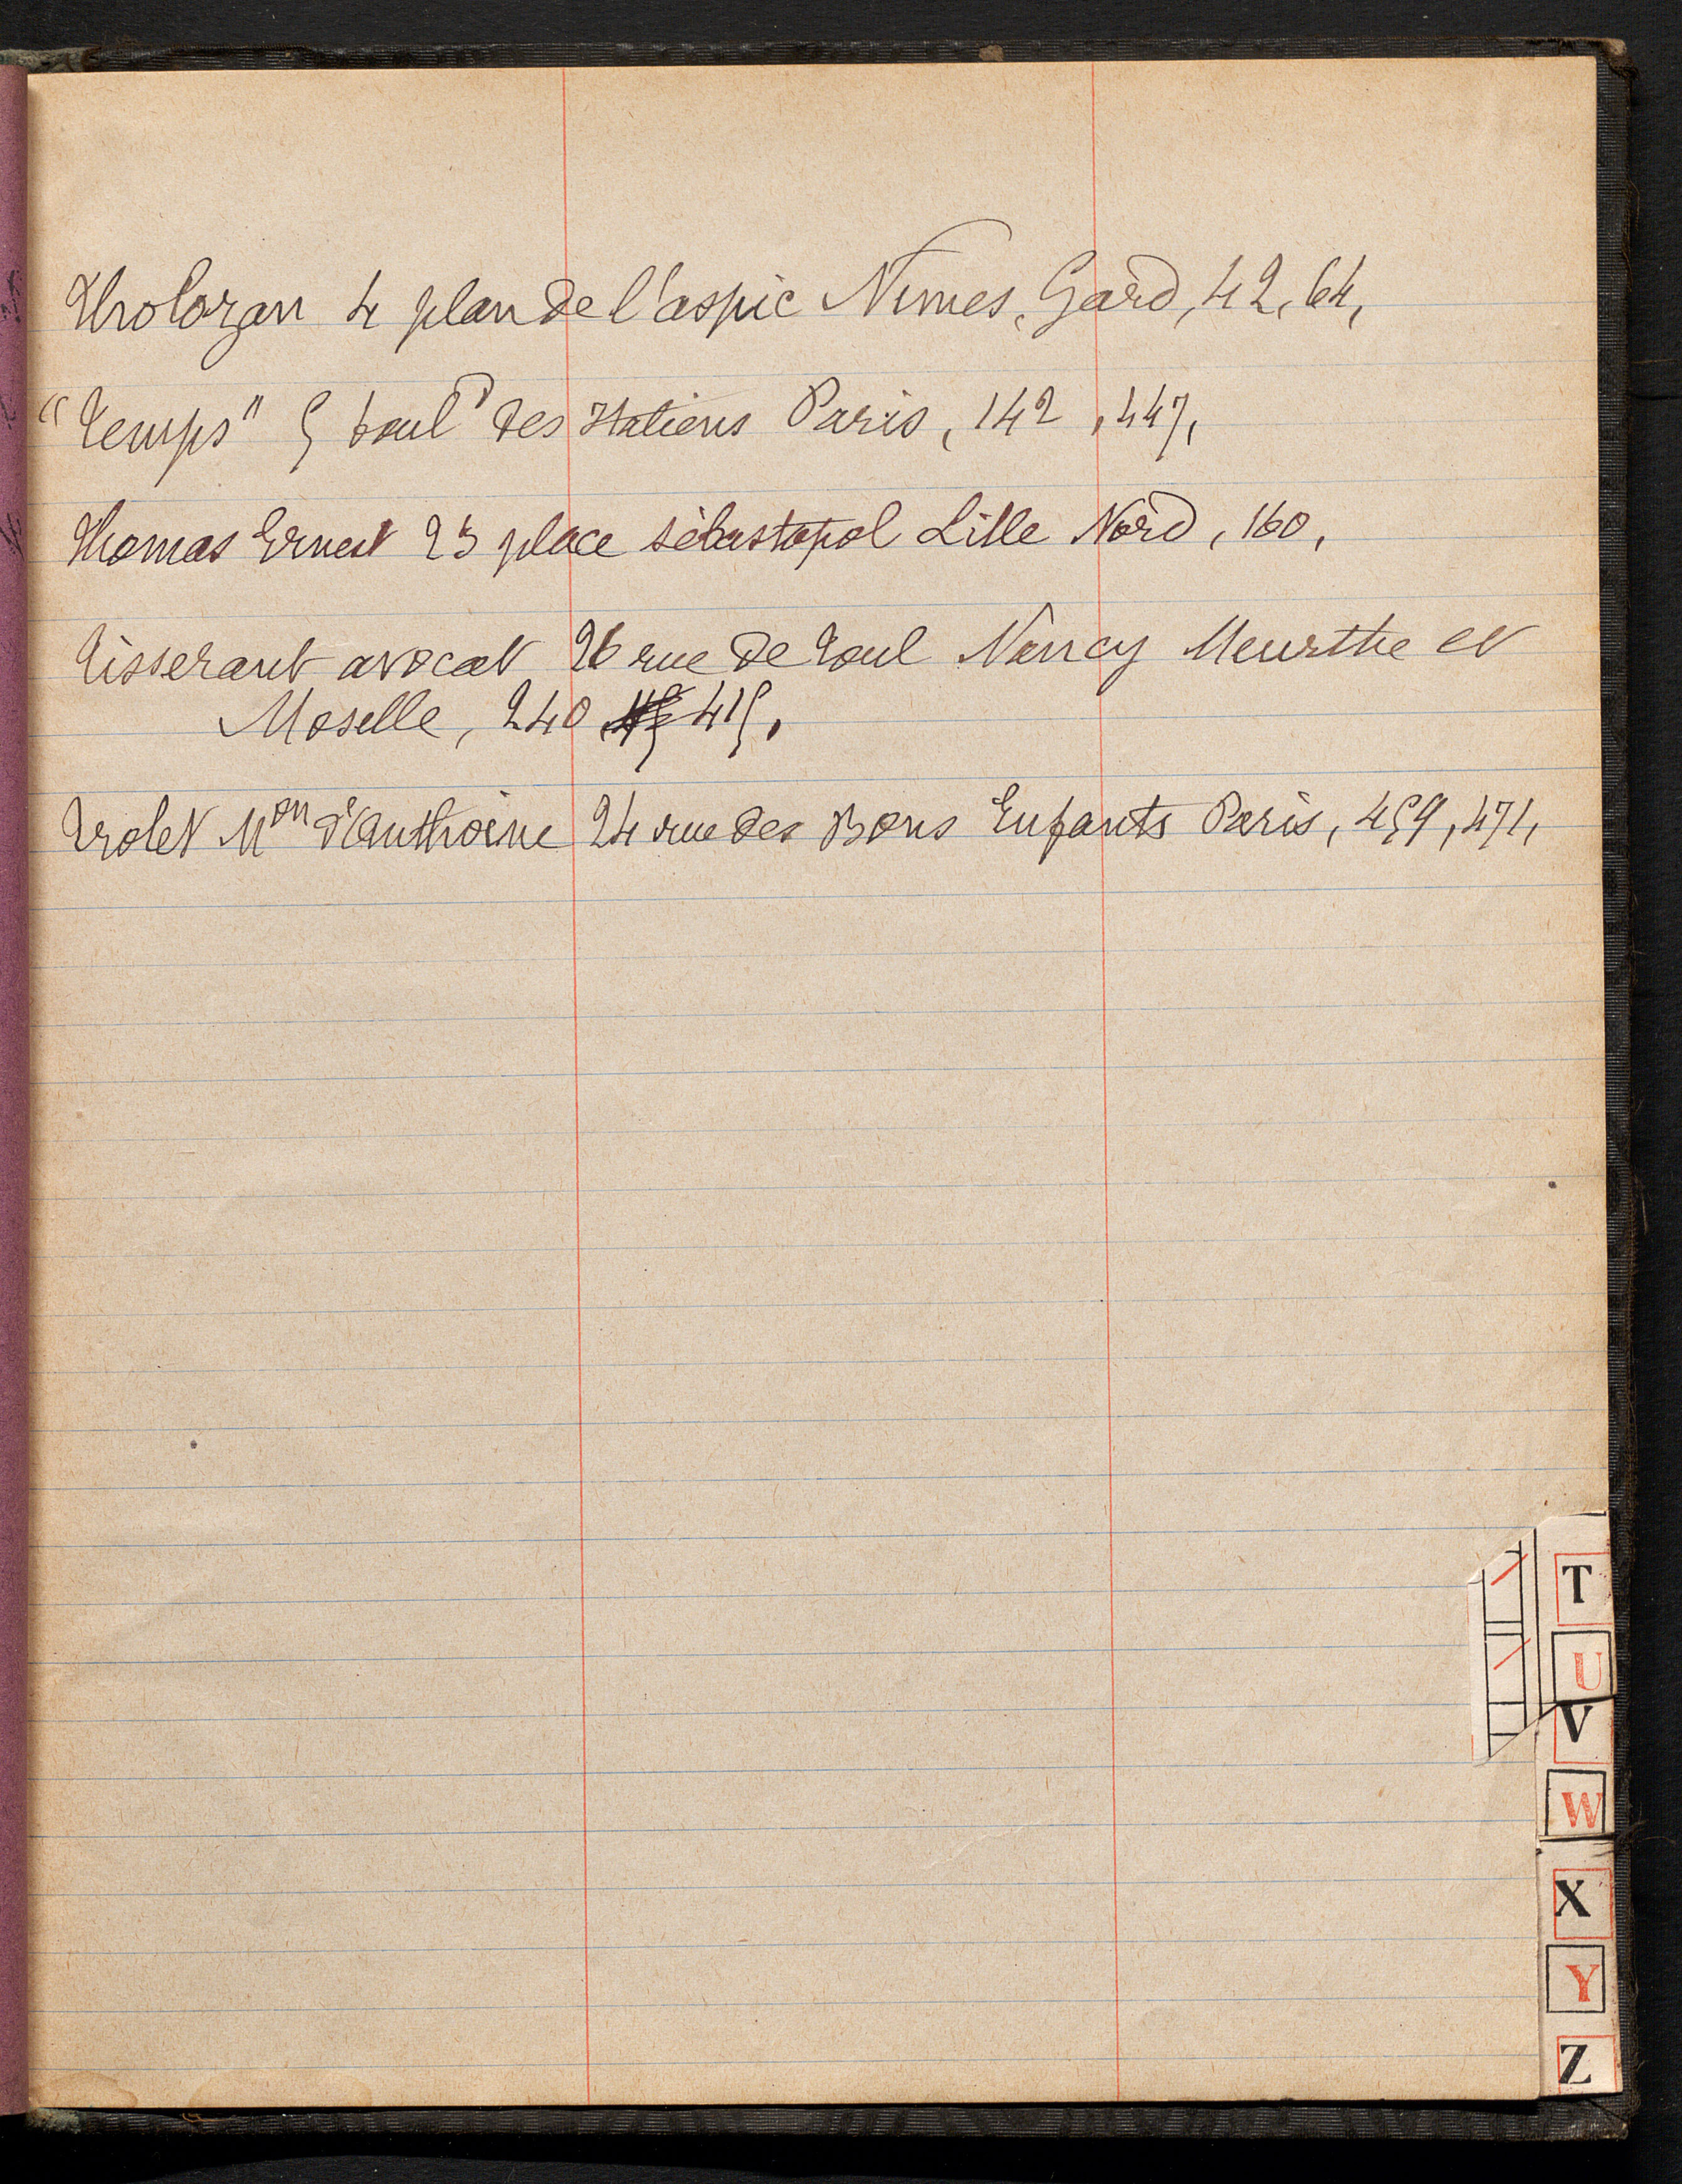 Throlozan 4 plan de l'aspic Nimes, Gard, 42, 64,
"Temps" 5 boul^d des Italiens Paris, 142, 447,
Thomas Ernest 25 place sébastopol Lille Nord, 160,
Tisserant avocat 26 rue de Toul Nancy Meurthe et
Moselle, 240 415,
Trolet M^on d'Anthoine 24 rue des Bons Enfants Paris, 459, 471,
T
U
V
W
X
Y
Z